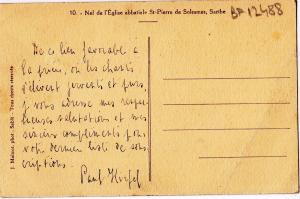 10. - Nef de l'Église abbatiale St-Pierre de Solesmes, Sarthe
BP12488
De ce lieu favorable à
la prière, où les chants
s'élèvent fervents et purs,
je vous adresse mes respec-
tueuses salutations et mes
sincères compliments pour
votre dernier liste de sous-
criptions.
Paul
J. Malicot, phot. Sablé - Tous droits réservés